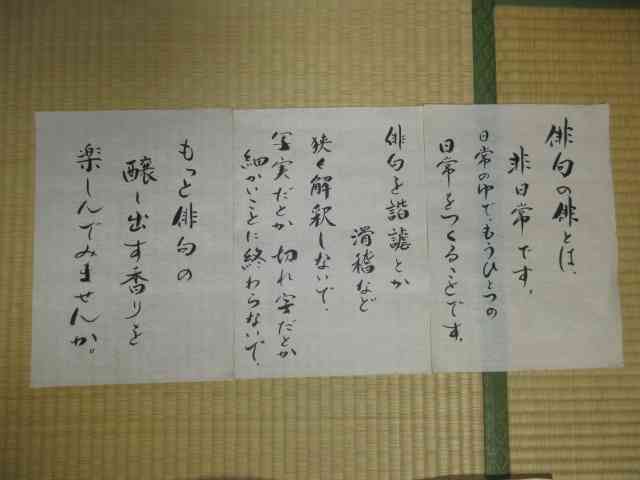 俳句の俳とは、
非日常です。
日常の中で、もうひとつの
日常をつくることです。
俳句を諧謔とか
滑稽など
狭く解釈しないで、
写実だとか切れ字だとか
細かいことに終わらないで、
もっと俳句の
醸し出す香りを
楽しんでみませんか。